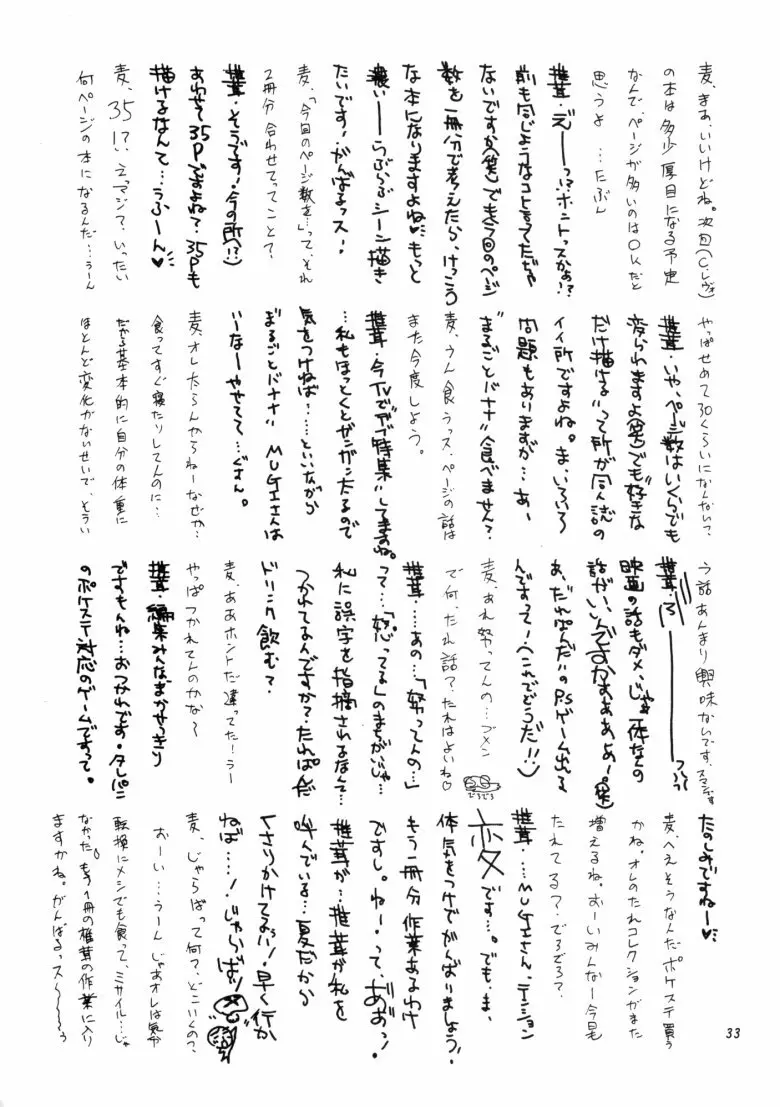 麦、まぁ、いいけどね。次回(C.レヴォ)
の本は多少厚目になる予定
なんで、ページが多いのはOKだと
思うよ…たぶん
椎茸・えーーっ!?ホントっスかぁ!?
前も同じようなコト言ってたじゃ
ないですか(笑)でも今回のページ
数を一冊分で考えたら、けっこう
な本になりますよね♥もっと
濃いーーらぶらぶシーン描き
たいです!がんばるっス!
麦、「今回のページ数を…」って、それ
2冊分合わせてってこと?
椎茸・そうです!今の所(!?)
あわせて35Pですよね?35Pも
描けるなんて…うふーん♥
麦、35!?えっマジで、いったい
何ページの本になるんだ…うーん
やっぱせめて30くらいになんない?
椎茸・いや、ページ数はいくらでも
変られますよ(笑)でも"好きな
だけ描ける"って所が同人誌の
イイ所ですよね。ま、いろいろ
問題もありますが…あ、
"まるごとバナナ"食べません?
麦、うん食うっス、ページの話は
また今度しよう。
椎茸・今TVで"デブ特集"してますね。
…私もほっとくとガンガン太るので
気をつけねば……といいながら
"まるごとバナナ" MUGIさんは
いーなーやせてて…ぐすん。
麦、オレ太らんからねーなぜか…
食ってすぐ寝たりしてんのに…
だから基本的に自分の体重に
ほとんど変化がないせいで、そうい
う話あんまり興味ないです、スマンです
椎茸・ろーーーっっっ
映画の話もダメ、じゃあ一体なんの
話がいいんですかぁぁぁぁ!(笑)
あ、"たれぱんだ"のPSゲーム出る
んですって!(これでどうだ!!)
麦、あれ努ってんの…ブメン
で何、たれ話?たれはよいね♡
でろでろ
椎茸…あの…「努ってんの…」
って…「怒ってる」のまちがいじゃ…
私に誤字を指摘されるなんて…
つかれてるんですか?たれぱんだ
ドリンク飲む?
麦、ああホントだ違ってた!うー
やっぱつかれてんのかな〜
椎茸・編集みんなまかせっきり
ですもんね…おつかれです・タレパン
のポケステ対応のゲームですって。
たのしみですねー♥
麦、へえそうなんだポケステ買う
かね。オレのたれコレクションがまた
増えるね。おーいみんなー今日も
たれてる?でろでろ?
椎茸・…MUGIさん、テーション
変です…。でも、ま、
体気をつけてがんばりましょう!
もう一冊分作業あるわけ
ですし。ねー・って、ああっ!
椎茸が…椎茸が私を
呼んでいる…夏だから
くさりかけてるぅ!!早く行か
ねば…!じゃらばっ!
麦、じゃらばって何?、どこいくの?
おーい…うーん じゃあオレは気分
転換にメシでも食って、ミサイル…じゃ
なかった。もう1冊の椎茸の作業に入り
ますかね。がんばるっス〜〜〜〜
33